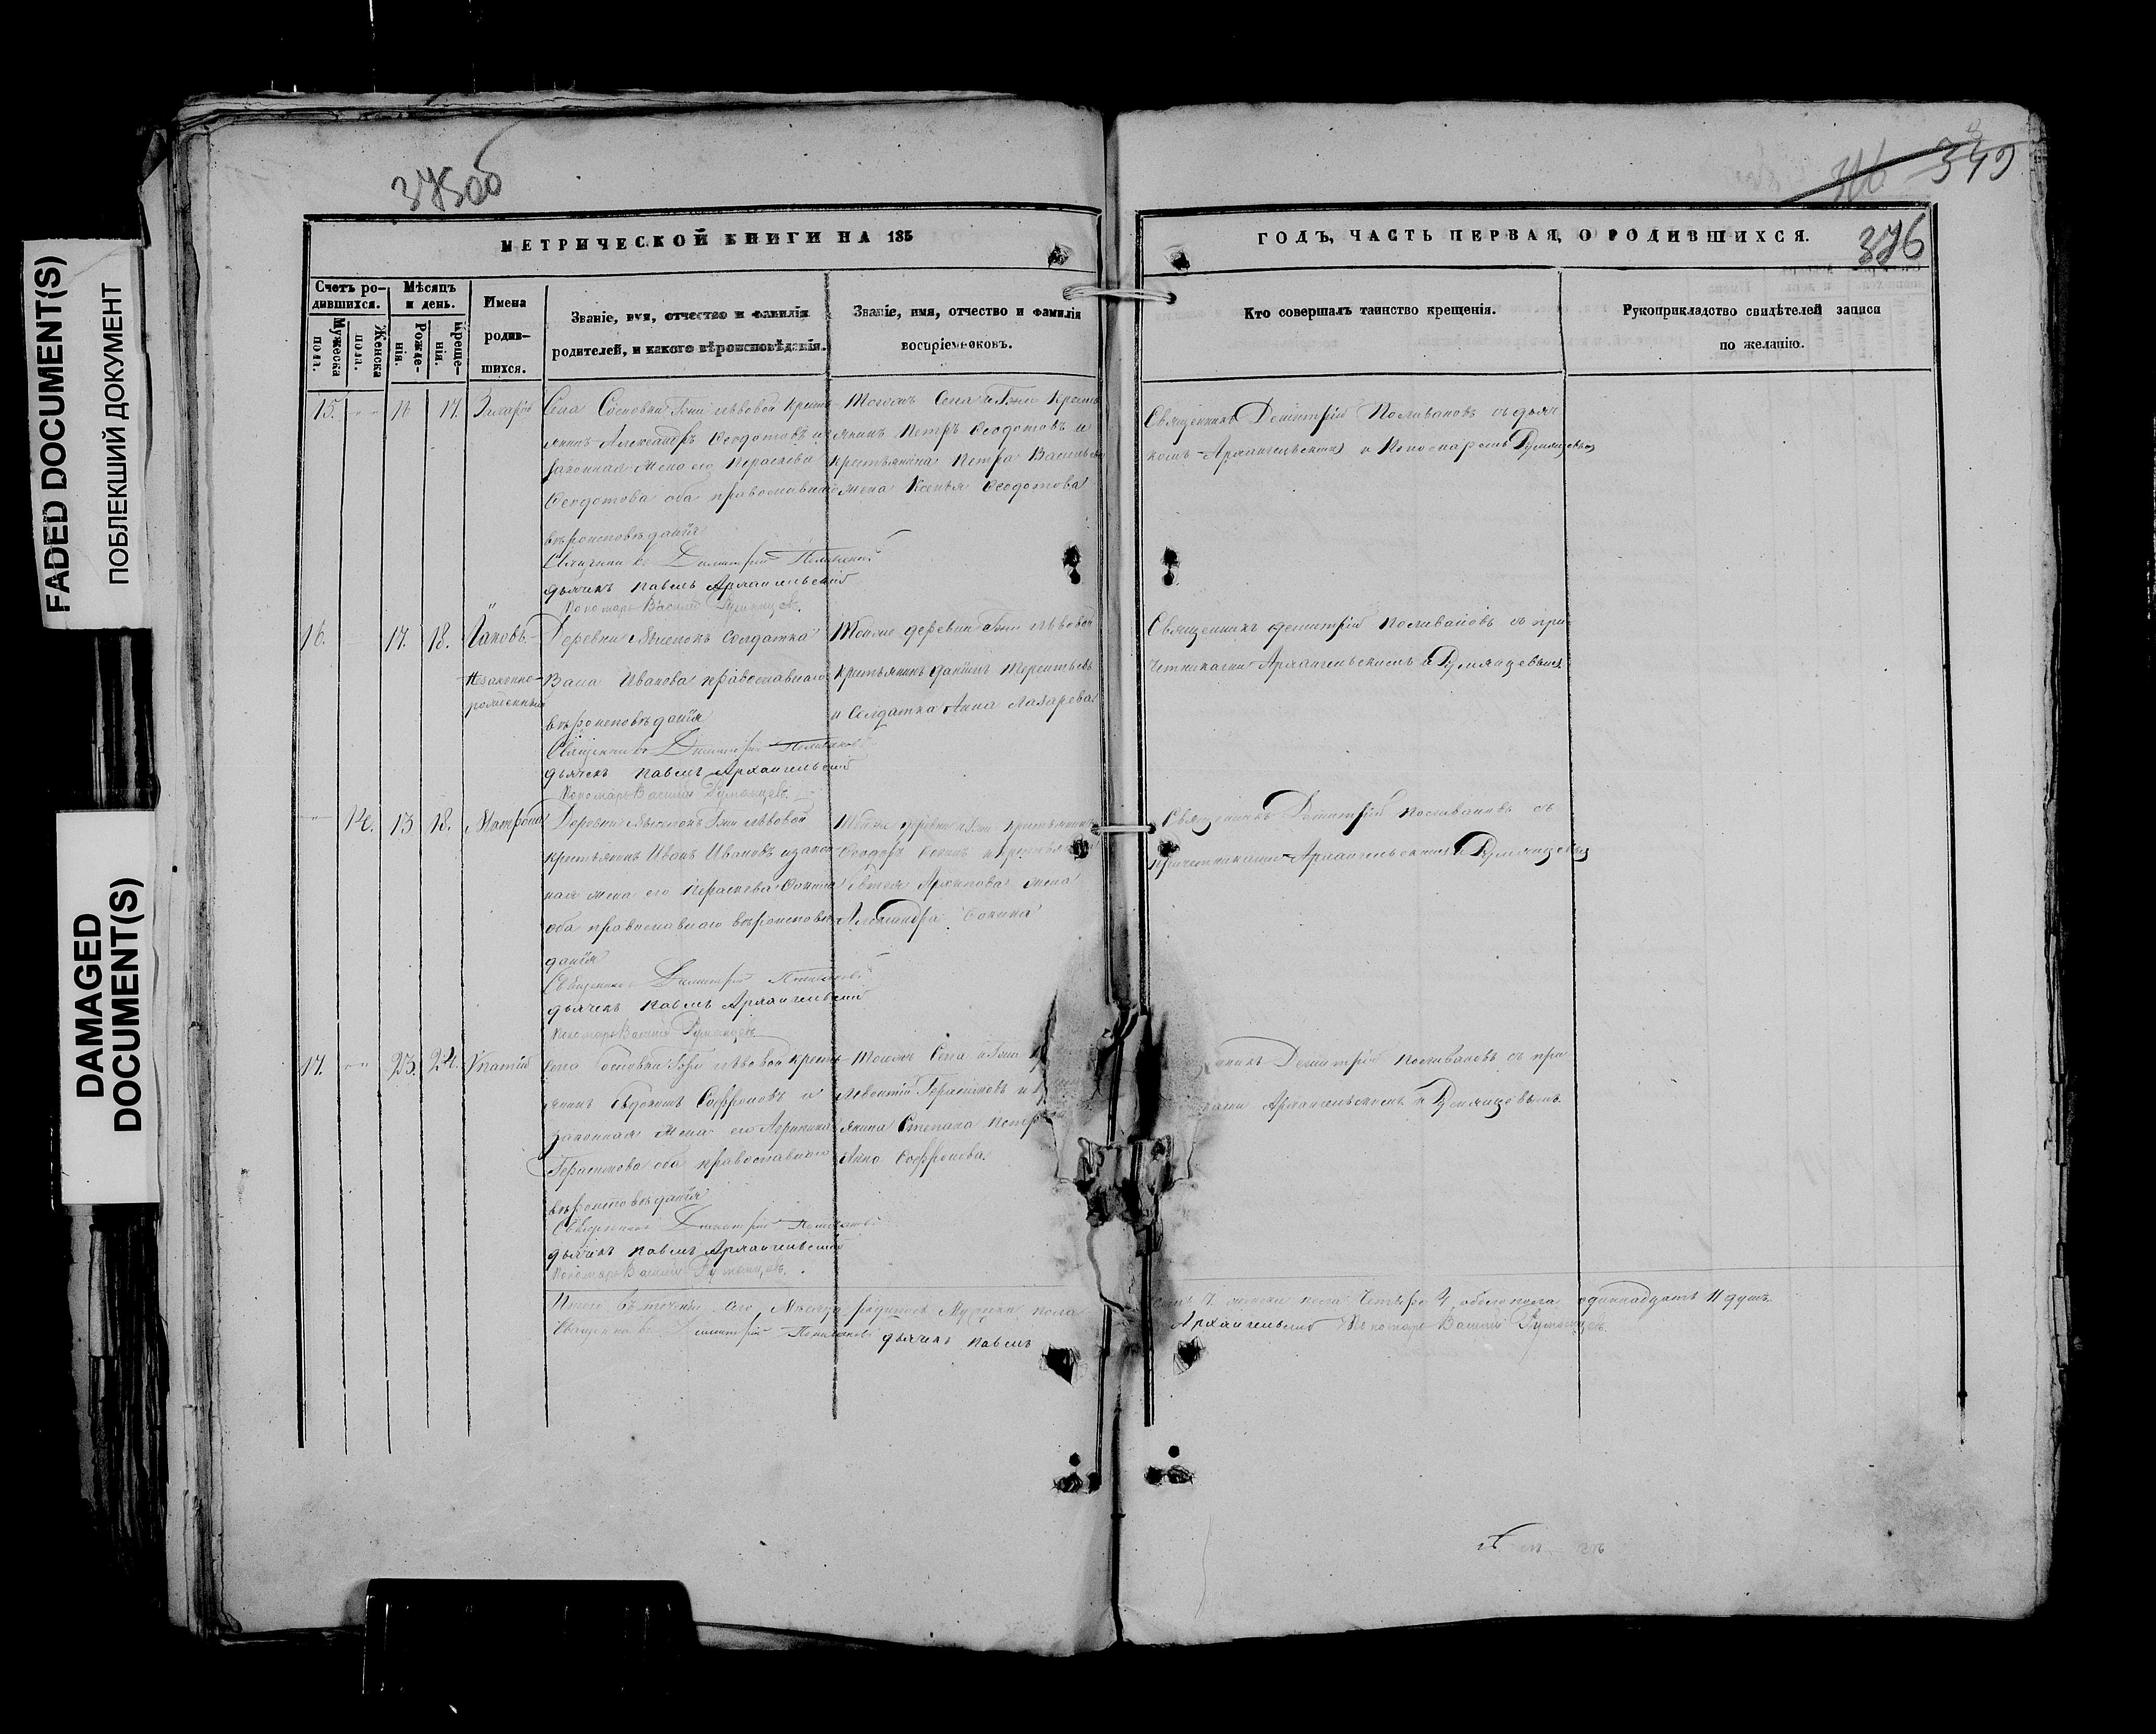 FADED DOCUMENT(S)
ПОБЛЕКШИЙ ДОКУМЕНТ
DAMAGED
DOCUMENT(S)
375об
349
376
МЕТРИЧЕСКОЙ КНИГИ НА 185
ГОДЪ, ЧАСТЬ ПЕРВАЯ, О РОДИВШИХСЯ.
Счетъ ро-
дившихся.
Мужеска
пола.
Женска
пола.
Мѣсяцъ
и день.
Рожде-
нія.
Креще-
нія.
Имена
родив-
шихся.
Званіе, имя, отчество и фамилія
родителей, и какого вѣроисповѣданія.
Званіе, имя, отчество и фамилія
воспріемниковъ.
Кто совершалъ таинство крещенія.
Рукоприкладство свидѣтелей записи
по желанію.
15. 16 17. Захарій
Села Сосновки Гжи Львовой кресть-
янинъ Александръ Ѳеодотовъ и
законная жена его Параскева
Ѳеодотова оба православнаго
вѣроисповѣданія
Священникъ Димитрій Поливановъ
дьячекъ Павелъ Архангельскій
Пономарь Василій Румянцевъ.
Тогожъ Села и Гжи Кресть-
янинъ Петръ Ѳеодотовъ и
крестьянина Петра Васильева
жена Ксенья Ѳеодотова
Священникъ Димитрій Поливановъ съ дьяч-
комъ Архангельскимъ и Пономаремъ Румянцевымъ
16. 17. 18. Іаковъ
Незаконно-
рожденный
Деревни солдатка
Иванова православнаго
вѣроисповѣданія
Священникъ Димитрій Поливановъ
дьячекъ Павелъ Архангельскій
Пономарь Василій Румянцевъ.
Тойже деревни Гжи Львовой
Крестьянинъ Терентьевъ
и Солдатка Анна Лазарева
Священникъ Димитрій Поливановъ съ при-
четниками Архангельскимъ и Румянцевымъ.
13 18. Матрона
Деревни Гжи Львовой
крестьянинъ Иванъ Ивановъ и закон-
ная жена его Параскева Ѳокина
оба православнаго вѣроисповѣ-
данія
Священникъ Димитрій Поливановъ
дьячекъ Павелъ Архангельскій
Пономарь Василій Румянцевъ
Тойже деревни и Гжи крестьянинъ
Ѳеодоръ Ѳокинъ и крестьянина
Архипова жена
Александра Ѳокина
Священникъ Димитрій Поливановъ съ
причетниками Архангельскимъ и Румянцевымъ
17. 23. 24. Ипатій
Села Сосновки Гжи Львовой кресть-
янинъ Евдокимъ Софроновъ и
законная жена его Агрипина
Герасимова оба православнаго
вѣроисповѣданія
Священникъ Димитрій Поливановъ
дьячекъ Павелъ Архангельскій
Пономарь Василій Румянцевъ.
Тогожъ Села и Гжи
Леонтій Герасимовъ и
янина Степана Петр
Анна Софронова.
Димитрій Поливановъ съ при
Архангельскимъ и Румянцевымъ.
Итого въ теченіи сего Мѣсяца родилось Мужска пола
7 женска пола Четыре 4, обоего пола одиннадцать 11 душъ.
Священникъ Димитрій Поливановъ дьячекъ Павелъ
Архангельскій Пономарь Василій Румянцевъ.